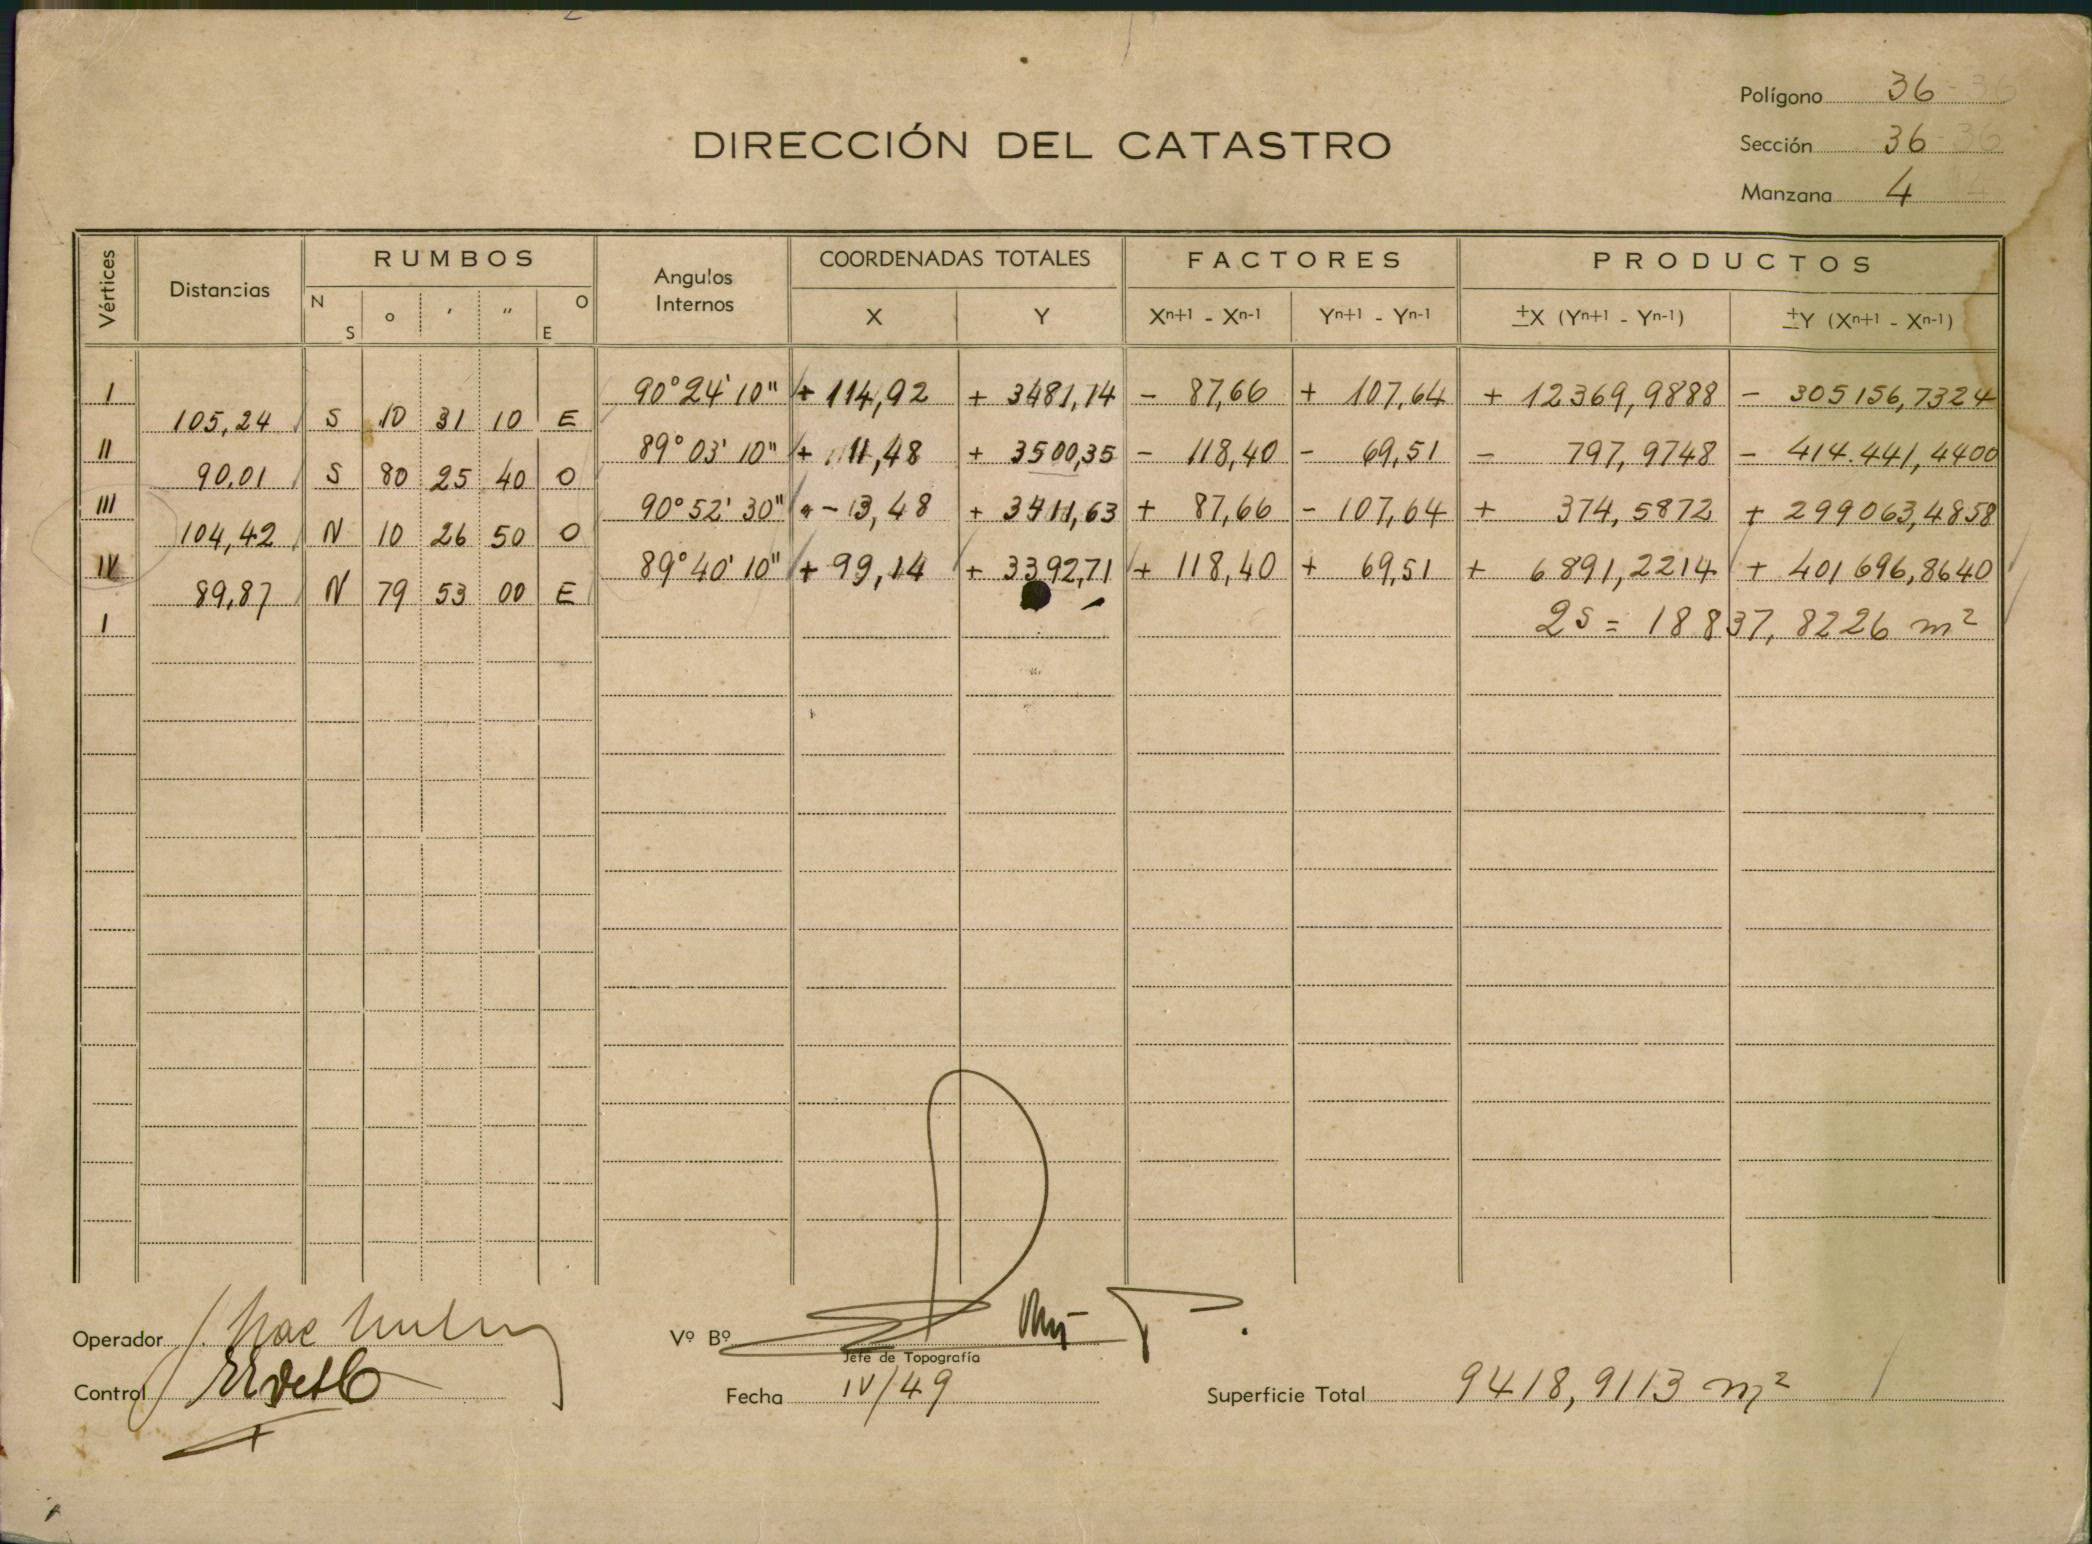 Polígono 36
DIRECCIÓN DEL CATASTRO
Sección 36
Manzana 4
Vértices Distancias RUMBOS Angulos Internos COORDENADAS TOTALES FACTORES PRODUCTOS
N S o ′ ″ O E X Y Xn+1 - Xn-1 Yn+1 - Yn-1 ±X (Yn+1 - Yn-1) ±Y (Xn+1 - Xn-1)
I 90° 24' 10" + 114,92 + 3481,14 - 87,66 + 107,64 + 12369,9888 - 305156,7324
105,24 S 10 31 10 E
II 89° 03' 10" + 11,48 + 3500,35 - 118,40 - 69,51 - 797,9748 - 414.441,4400
90,01 S 80 25 40 O
III 90° 52' 30" - 13,48 + 3411,63 + 87,66 - 107,64 + 374,5872 + 299063,4858
104,42 N 10 26 50 O
IV 89° 40' 10" + 99,14 + 3392,71 + 118,40 + 69,51 + 6891,2214 + 401696,8640
89,87 N 79 53 00 E
I 2S = 18837,8226 m²
Operador
Vº Bº
Jefe de Topografía
Control
Fecha IV/49
Superficie Total 9418,9113 m²